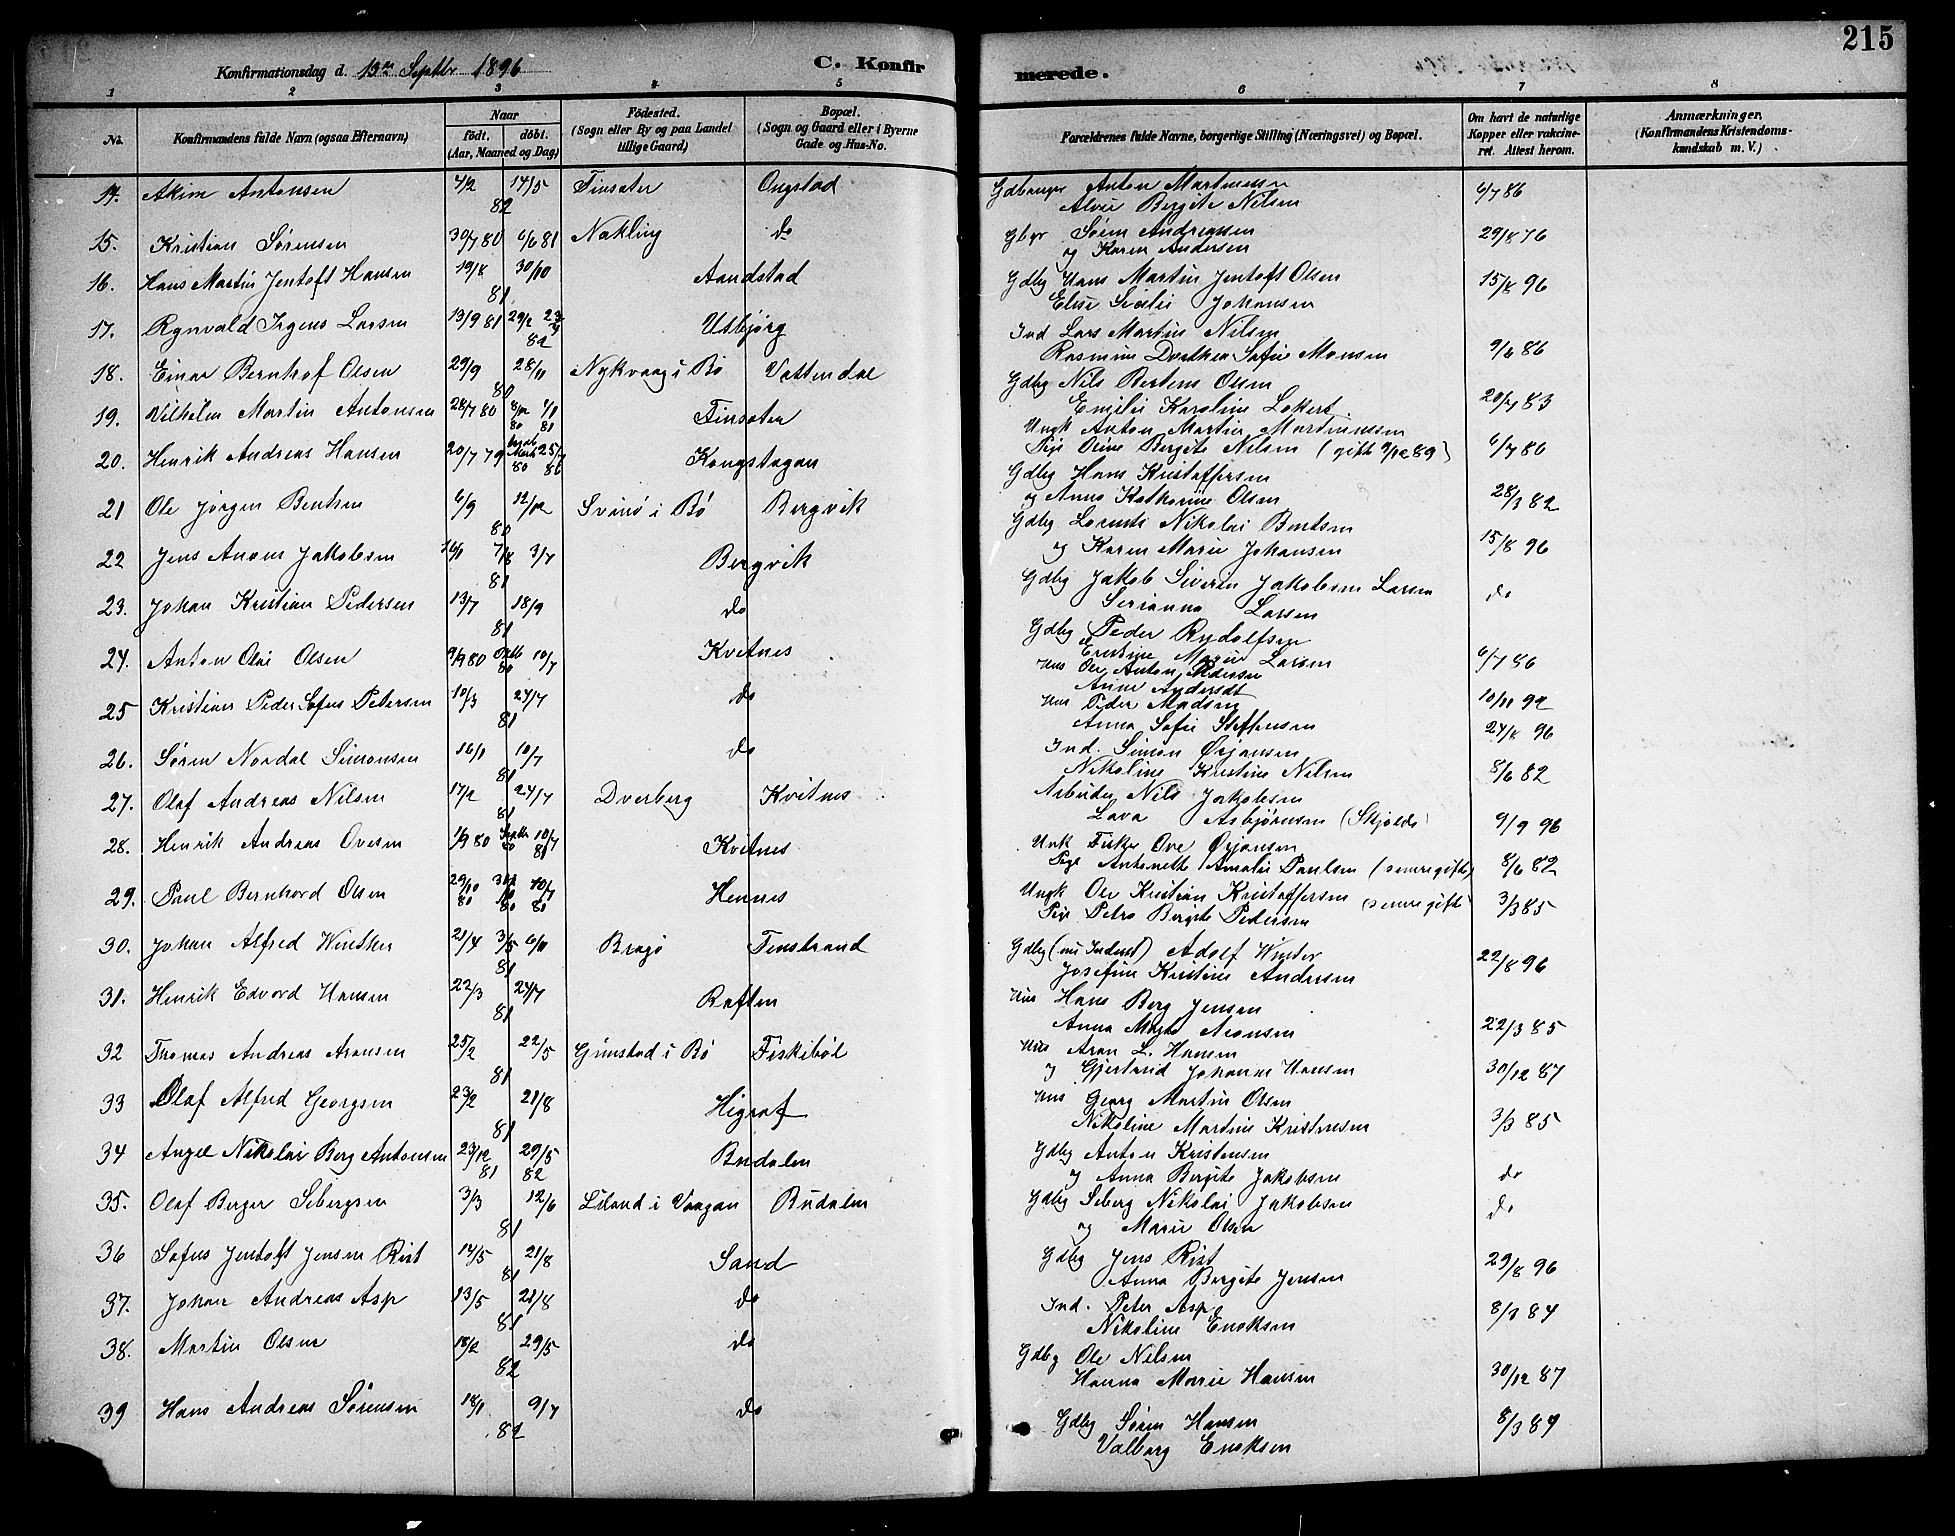 215
Konfirmationsdag d. 13de Septbr 1896 C. Konfirmerede.
1 2 3 4 5 6 7 8
No. Konfirmandens fulde Navn (ogsaa Efternavn) Naar født. døbt. (Aar, Maaned og Dag) Fødested. (Sogn eller By og paa Landet tillige Gaard) Bopæl. (Sogn og Gaard eller i Byerne Gade og Hus-No. Forældrenes fulde Navne, borgerlige Stilling (Næringsvei) og Bopæl. Om havt de naturlige Kopper eller vakcineret. Attest herom. Anmærkninger. (Konfirmandens Kristendomskundskab m. V.)
14. Akim Antonsen 4/2 14/5 82 Finsæter Ongstad Gdbruger Anton Martinussen 6/7 86
Alvie Bergite Nilsen
15. Kristian Sørensen 30/7 80 6/6 81 Nakling do Gbgr Søren Andreassen 29/8 76
og Karen Andersen
16. Hans Martin Jentoft Hansen 19/8 30/10 81 Aandstad Gdbg Hans Martin Jentoft Olsen 15/8 96
Elise Sicilie Johansen
17. Rgnvald Irgens Larsen 13/9 81 29/2 82 Utbjørg Ind Lars Martin Nilsen
Rasmine Dorthea Sofie Monsen 9/6 86
18. Einar Bernhof Olsen 29/9 28/11 80 Nykvaag i Bø Vottendal Gdbg Nils Bertens Olsen
Emilie Karoline Lokert 20/7 83
19. Vilhelm Martin Antonsen 28/7 80 8/12 80 4/1 81 Finsæter Ungk Anton Martin Martinussen
Pige Oline Bergite Nilsen (gift 9/12 89) 6/7 86
20. Henrik Andreas Hansen 20/7 79 80 25/7 Kongstagan Gdbg Hans Kristoffersen
og Anne Katharine Olsen 28/3 82
21 Ole Jørgen Bentsen 6/9 12/12 80 Svinø i Bø Bergvik Gdbg Lorents Nikolai Bentsen
og Karen Marie Johansen 15/8 96
22 Jens Anton Jakobsen 16/1 7/8 3/7 81 Bergvik Gdbg Jakob Siveren Jakobsen Larsen do
Serianna Larsen
23. Johan Kristian Pedersen 13/7 18/9 81 do Gdbg Peder Rudolfsen
Kristine Marie Larsen 6/7 86
24. Anton Olai Olsen 9/9 80 Oktb 80 10/7 Kvitnes Hus Ole Anton Pedersen
Anne Andersdt 10/11 92
25 Kristian Peder Sofus Petersen 10/3 24/7 81 do Hus Peder Madsen
Anna Sofie Steffensen 24/8 96
26. Søren Nordal Simonsen 16/1 10/7 81 do Ind. Simon Ørjansen
Nikoline Kristine Nilsen 8/6 82
27. Olaf Andreas Nilsen 17/2 24/7 81 Dverberg Kvitnes Arbeider Nils Jakobsen
Lava Asbjørnsen (Skjolds) 9/9 96
28. Henrik Andreas Ovesen 1/9 80 Septbr 80 10/7 81 Kvitnes Unk Fisker Ove Ørjansen
Pige Antonette Amalie Paulsen (senere gifte) 8/6 82
29. Paul Bernhard Olsen 29/10 80 80 10/7 81 Hennes Ungk Ole Kristian Kristoffersen (senere gift) 3/3 85
Pige Petra Bergite Pedersen
30. Johan Alfred Winther 21/4 3/5 6/11 81 Bragø Finstrand Gdbg (nu Inderst) Adolf Winter 22/8 96
Josefine Kristine Andersen
31. Henrik Edvard Hansen 22/3 24/7 81 Raften Hus Hans Berg Jensen
Anna Aronsen 22/3 85
32 Thomas Andreas Aronsen 25/2 22/5 81 Grimstad i Bø Fiskebøl Hus Aron L. Hansen
og Gjertrud Johanne Hansen 30/12 87
33 Olaf Alfred Georgsen 23/2 21/8 81 Higraf Hus Georg Martin Olsen
Nikoline Martine Kristnesen 3/3 85
34 Angel Nikolai Berg Antonsen 23/12 81 29/5 82 Budalen Gdbg Anton Kristensen
og Anna Bergite Jakobsen do
35. Olaf Berger Sebergsen 3/3 12/6 81 Liland i Vaagan Budalen Gdbg Seberg Nikolai Jakobsen do
og Marie Olsen
36 Sofus Jentoft Jensen Rist 14/5 21/8 81 Sand Gdbg Jens Rist 29/8 96
Anna Bergite Jensen
37. Johan Andreas Asp 13/5 21/8 81 do Ind. Peter Asp 8/3 84
Nikoline Enoksen
38. Martin Olsen 18/2 29/5 82 do Gdbg Ole Nilsen
Hanna Marie Hansen 30/12 87
39 Hans Andreas Sørensen 18/1 9/7 82 do Gdbg Søren Hansen 8/3 84
Valborg Enoksen